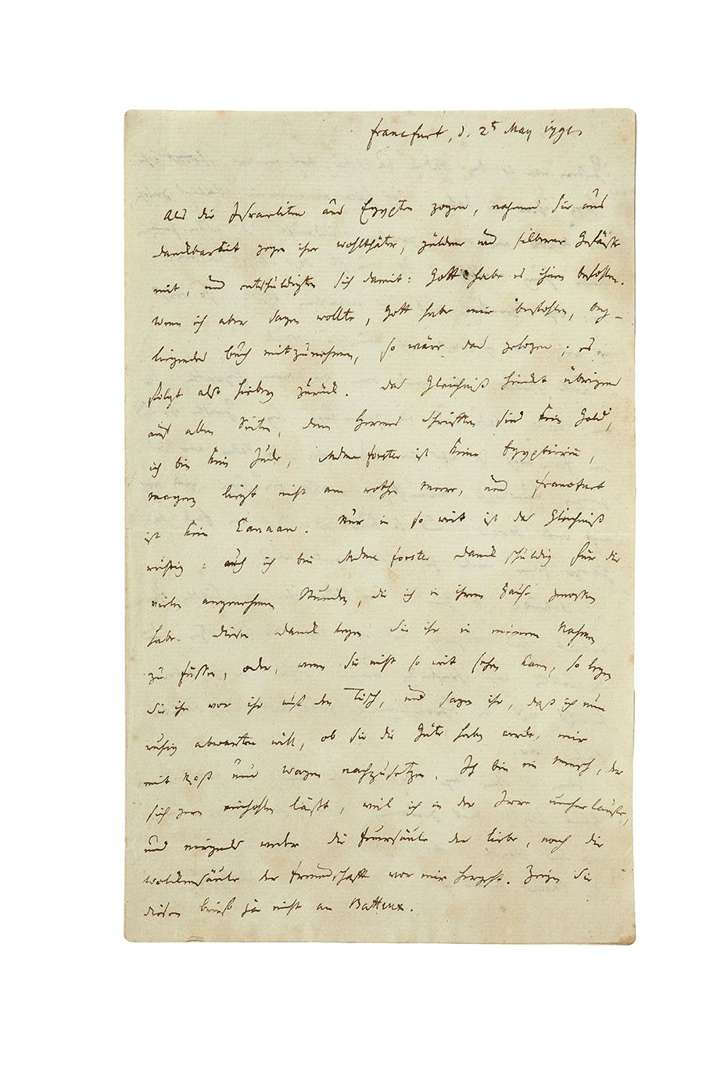 Francfurt, d. 2t May 1791.
Als die Israeliten aus Egypten zogen, nahmen sie aus
Danckbarkeit gegen ihre wohlthäter, güldene und silberne Gefäße
mit, und entschuldigten sich damit: Gott habe es ihnen befohlen.
Wenn ich aber sagen wollte, Gott habe mir befohlen,
liegendes buch mitzunehmen, so wäre das gelogen; es
folgt also hierbey zurück. Das Gleichniß hinckt übrigens
auf allen Seiten, denn Schrifften sind kein Gold,
ich bin kein Jude, Madme Forster ist keine Egyptierin,
Maynz liegt nicht am rothen Meere, und Franckfurt
ist kein Canaan. Nur in so weit ist das Gleichniß
richtig: auch ich bin Madme Forster Danck schuldig für die
vielen angenehmen Stunden, die ich in ihrem Hause genossen
habe. Diesen Danck legen Sie ihr in meinem Nahmen
zu füssen, oder, wenn Sie nicht so weit sehen kann, so legen
Sie ihr vor ihr auf den Tisch, und sagen ihr, daß ich nun
ruhig abwarten will, ob sie die Güte haben werde, mir
mit Roß und Wagen nachzusetzen. Ich bin ein Mensch, der
sich gern einholen läßt, weil ich in der Irre umherlaufe,
und nirgends weder die Feuersäule der liebe, noch die
wolckensäule der Freundschafft vor mir hergeht. Zeigen Sie
diesen brief ja nicht an